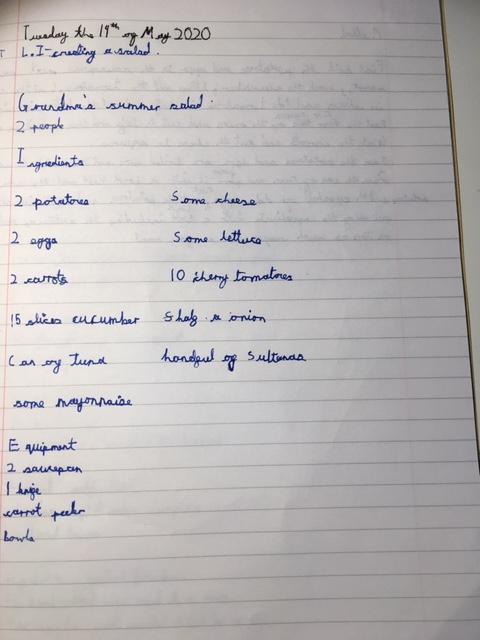 Tuesday the 19th of May 2020
T L.I-creating a salad.
Grandma's summer salad.
2 people
Ingredients
2 potatoes Some cheese
2 eggs Some lettuce
2 carrots 10 cherry tomatoes
15 slices cucumber half a onion
Can of tuna handful of Sultanas
some mayonnaise
Equipment
2 saucepan
1 knife
carrot peeler
bowls